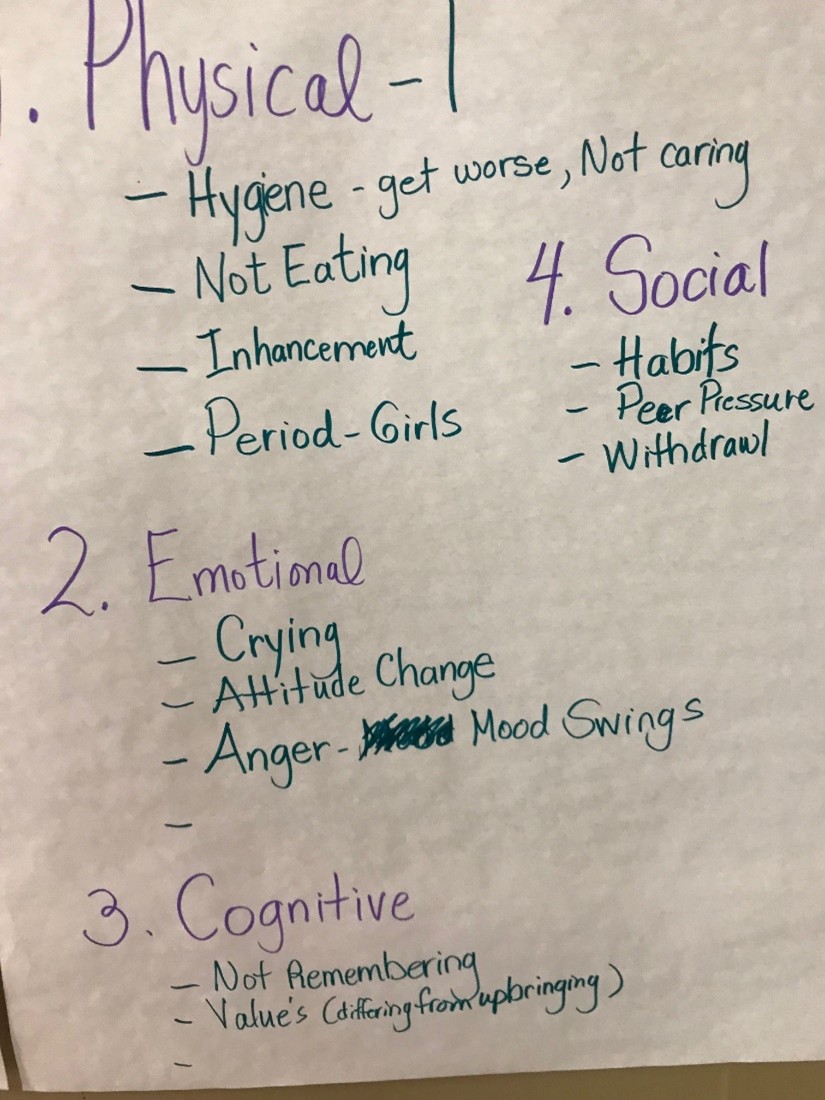 . Physical - 1
- Hygiene - get worse, Not caring
- Not Eating
- Inhancement
- Period - Girls
4. Social
- Habits
- Peer Pressure
- Withdrawl
2. Emotional
- Crying
- Attitude Change
- Anger - Mood Swings
-
3. Cognitive
- Not Remembering
- Value's (differing from upbringing)
-